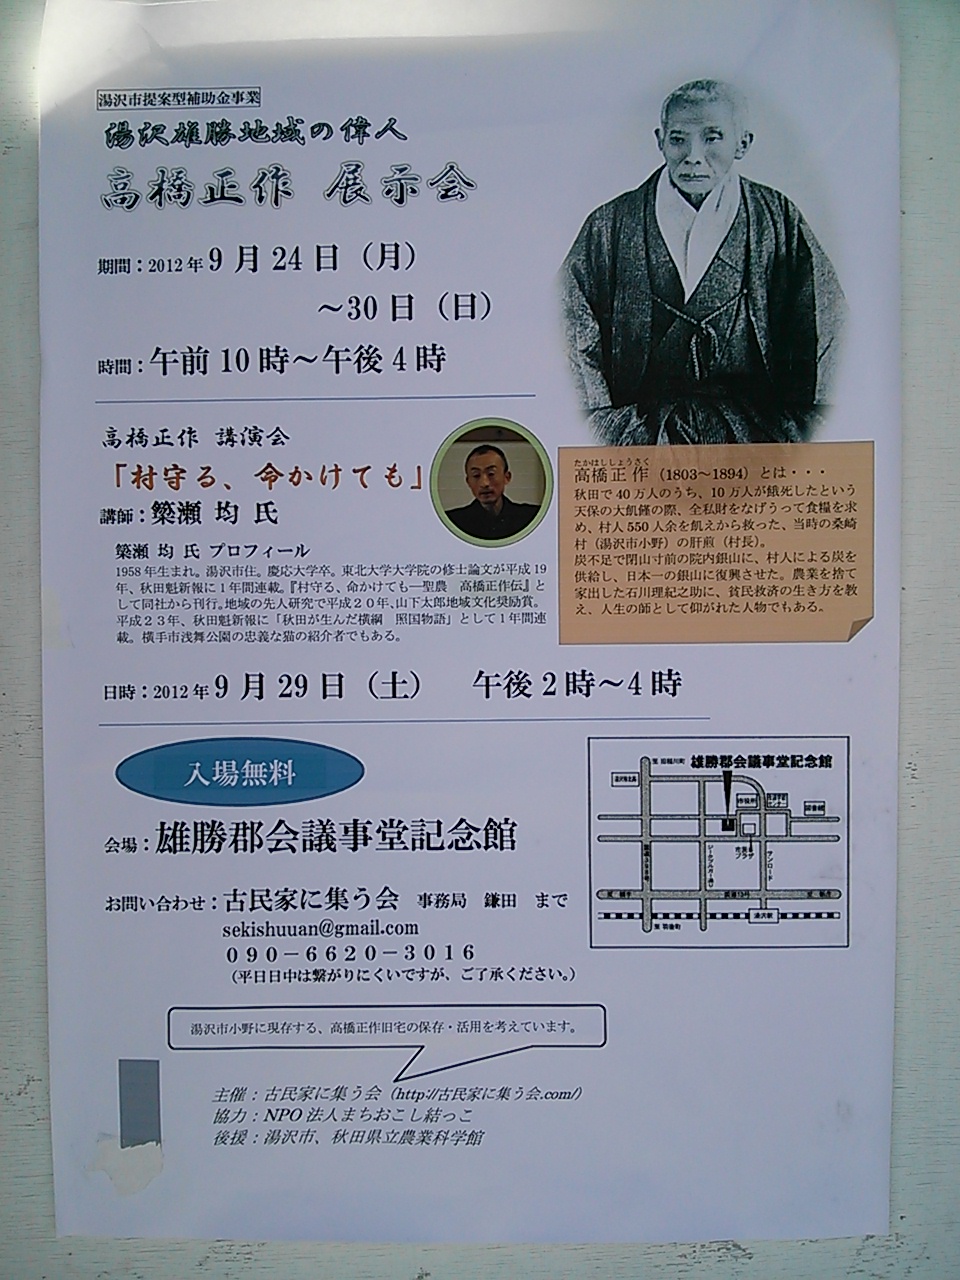 湯沢市提案型補助金事業
湯沢雄勝地域の偉人
高橋正作 展示会
期間：2012年9月24日（月）
～30日（日）
時間：午前10時～午後4時
高橋正作 講演会
「村守る、命かけても」
講師：簗瀬 均 氏
簗瀬 均 氏 プロフィール
1958年生まれ。湯沢市住。慶応大学卒。東北大学大学院の修士論文が平成19
年、秋田魁新報に1年間連載。『村守る、命かけても―聖農　高橋正作伝』と
して同社から刊行。地域の先人研究で平成20年、山下太郎地域文化奨励賞。
平成23年、秋田魁新報に「秋田が生んだ横綱　照国物語」として1年間連
載。横手市浅舞公園の忠義な猫の紹介者でもある。
たかはししょうさく
高橋正作（1803～1894）とは・・・
秋田で40万人のうち、10万人が餓死したという
天保の大飢饉の際、全私財をなげうって食糧を求
め、村人550人余を飢えから救った、当時の桑崎
村（湯沢市小野）の肝煎（村長）。
炭不足で閉山寸前の院内銀山に、村人による炭を
供給し、日本一の銀山に復興させた。農業を捨て
家出した石川理紀之助に、貧民救済の生き方を教
え、人生の師として仰がれた人物でもある。
日時：2012年9月29日（土）　午後2時～4時
入場無料
会場：雄勝郡会議事堂記念館
お問い合わせ：古民家に集う会　事務局　鎌田　まで
sekishuuan@gmail.com
０９０－６６２０－３０１６
（平日日中は繋がりにくいですが、ご了承ください。）
雄勝郡会議事堂記念館
市役所
図書館
サンロード
国道13号
湯沢駅
湯沢市小野に現存する、高橋正作旧宅の保存・活用を考えています。
主催：古民家に集う会（http://古民家に集う会.com/）
協力：NPO法人まちおこし結っこ
後援：湯沢市、秋田県立農業科学館